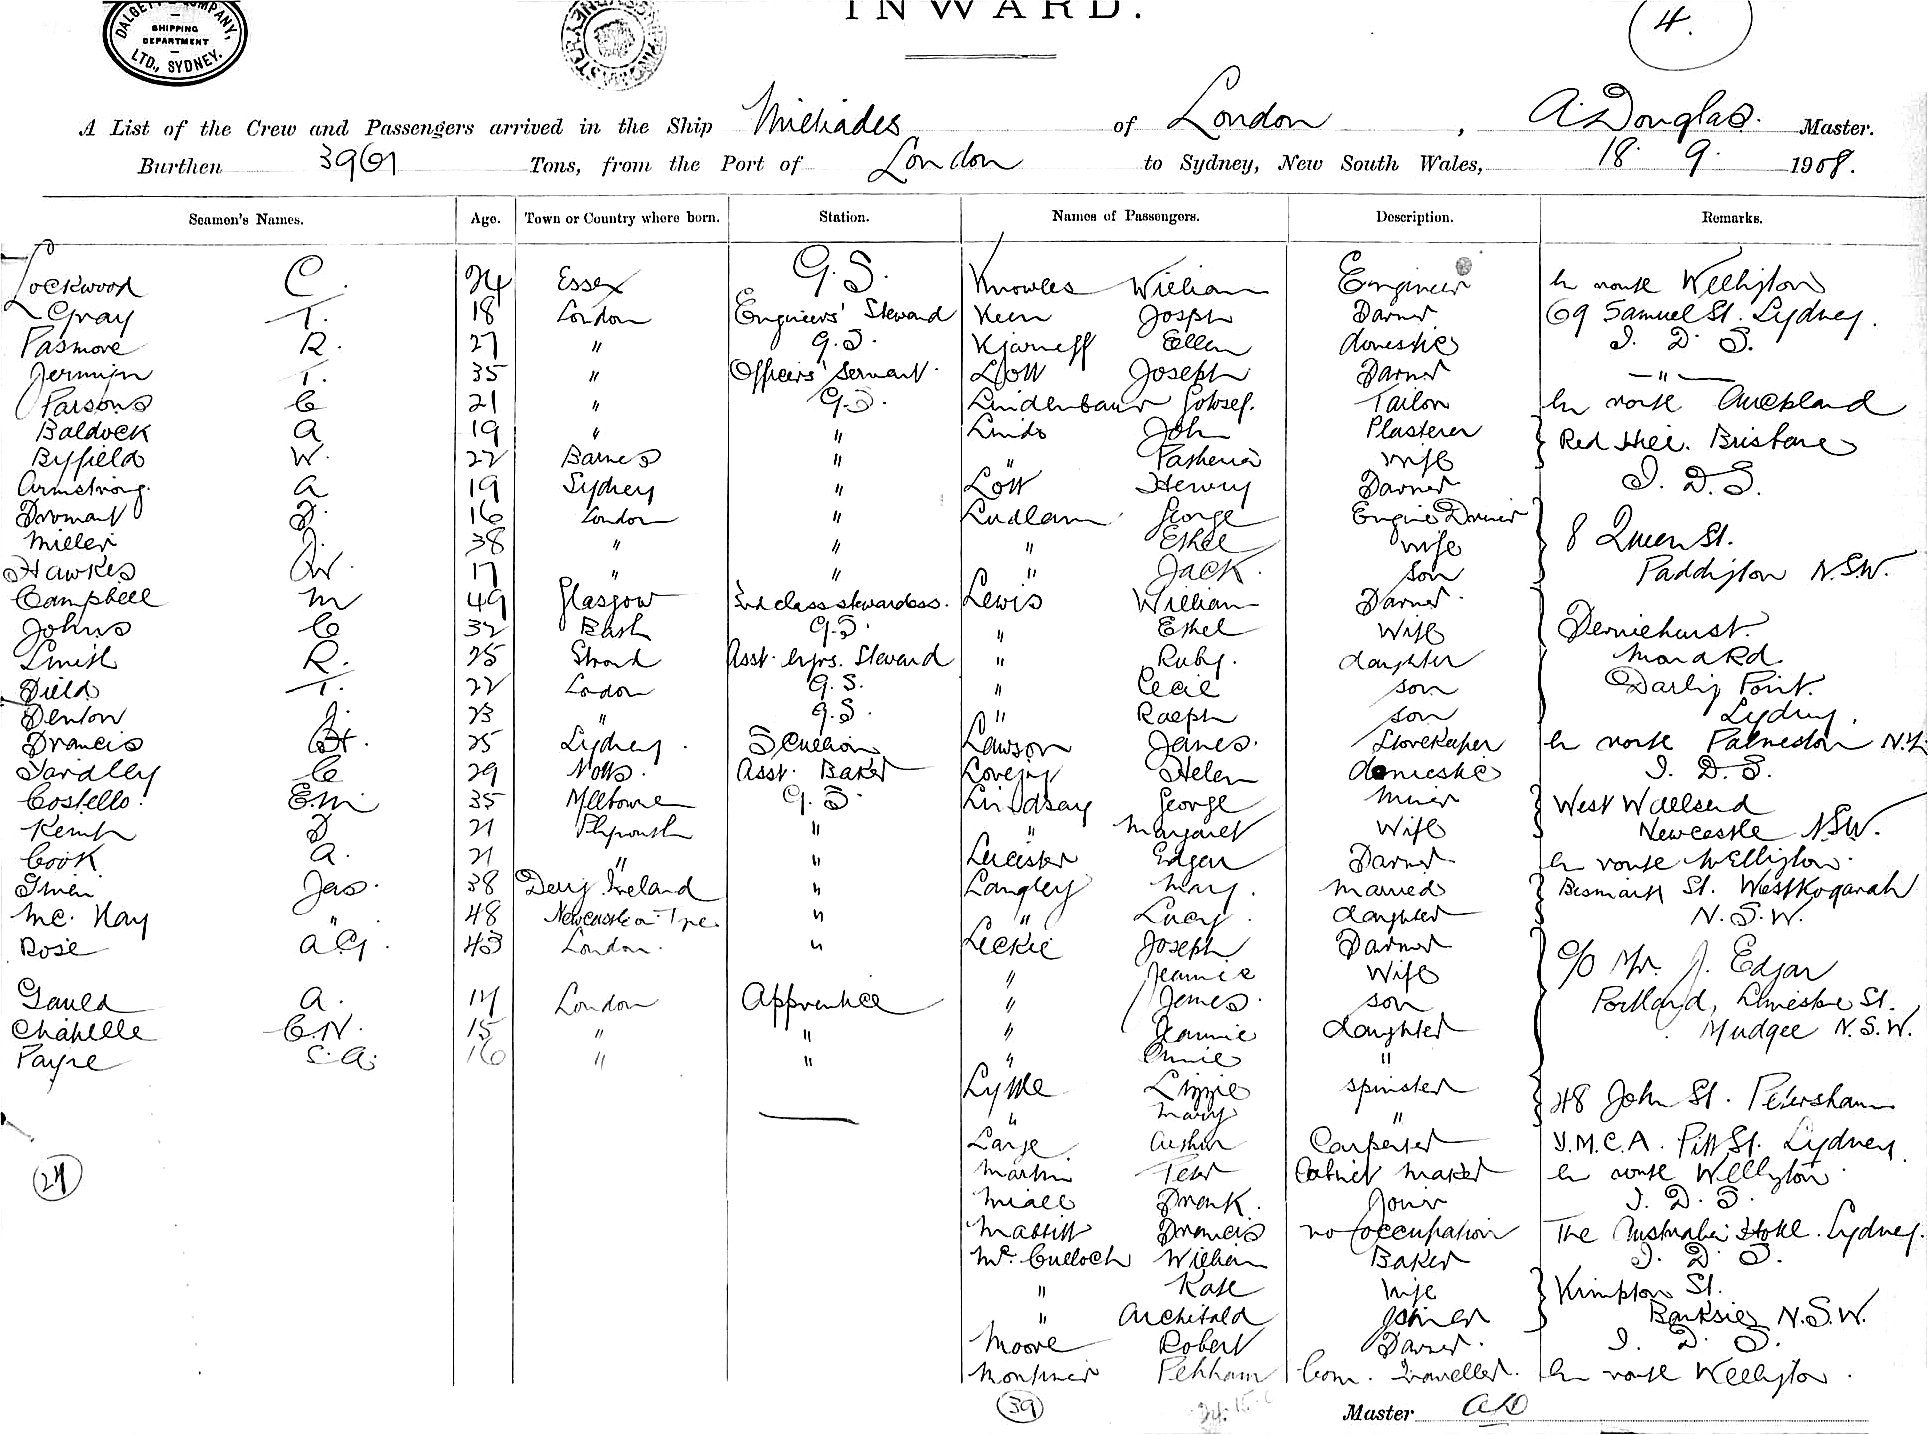 DALGETY & COMPANY, LTD., SYDNEY.
SHIPPING DEPARTMENT
INWARD.
4.
A List of the Crew and Passengers arrived in the Ship Miltiades of London, A. Douglas. Master.
Burthen 3961 Tons, from the Port of London to Sydney, New South Wales, 18. 9. 1908.
Seamen's Names. Age. Town or Country where born. Station. Names of Passengers. Description. Remarks.
Lockwood C. 24 Essex G.S. Knowles William Engineer En route Wellington
Gray T. 18 London Engineers' Steward Keen Joseph Farmer 69 Samuel St. Sydney.
Pasmore R. 27 " G.S. Ellen domestic I. D. S.
Jermyn T. 35 " Officers' Servant. Lott Joseph Farmer — " —
Parsons C 21 " G.S. Lindenbaum Tailor En route Auckland
Baldock A 19 " " Linds John Plasterer Red Hill. Brisbane
Byfield W. 22 Barnes " " wife
Armstrong. A 19 Sydney " Lott Henry Farmer I. D. S.
F. 16 London " Ludlam George Engine Driver 8 Queen St.
Miller J. 38 " " " Ethel wife
Hawkes W. 17 " " " Jack. son Paddington N.S.W.
Campbell M 49 Glasgow 3rd class stewardess. Lewis William Farmer.
Johns C 32 Bath G.S. " Ethel Wife
Smith R. 25 Stroud Asst. Steward " Ruby. daughter Rd.
Field T. 22 London G.S. " Cecil son Darling Point.
Denton J. 23 " G.S. " Ralph son Sydney.
Francis H. 25 Sydney. Scullion Lawson James. Storekeeper En route Palmerston N.Z.
Yardley C 29 Notts. Asst. Baker Lovejoy Helen domestic I. D. S.
Costello. E.M. 35 Melbourne G.S. Lindsay George Miner West Wallsend
Kemp F 21 Plymouth " " Margaret Wife Newcastle N.S.W.
Cook A. 21 " " Leicester Edgar Farmer En route Wellington.
Jas. 38 Derry Ireland " Langley Mary. married Bismark St. West Kogarah
Mc. Kay " 48 Newcastle on Tyne. " " Lucy. daughter N.S.W.
Rose A.G. 43 London. " Leckie Joseph Farmer c/o Mr. J. Edgar
" Jeannie Wife
Gauld A. 14 London Apprentice " James. son Portland, Limestone St.
Chapelle C.N. 15 " " " Jeannie daughter Mudgee N.S.W.
Payne S.A. 16 " " " Annie "
Lyttle Lizzie spinster 48 John St. Petersham
" Mary "
Large Arthur Carpenter Y.M.C.A. Pitt St. Sydney.
Martin Cabinet maker En route Wellington.
Miall Frank. Joiner I. D. S.
Francis no occupation The Australia Hotel. Sydney.
Mc. Culloch William Baker I. D. S.
" Kate wife St.
" Archibald Joiner N.S.W.
Moore Robert Farmer. I. D. S.
Mortimer Com. Traveller. En route Wellington.
27
39
Master AD